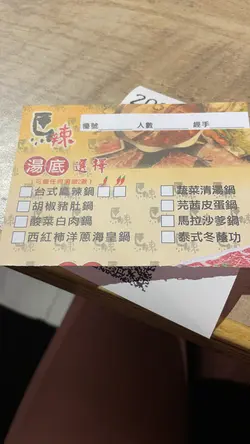 馬辣
檯號 人數 經手
20
湯底 選擇
台式麻辣鍋
胡椒豬肚鍋
酸菜白肉鍋
西紅柿洋蔥海皇鍋
蔬菜清湯鍋
芫茜皮蛋鍋
馬拉沙爹鍋
泰式冬蔭功